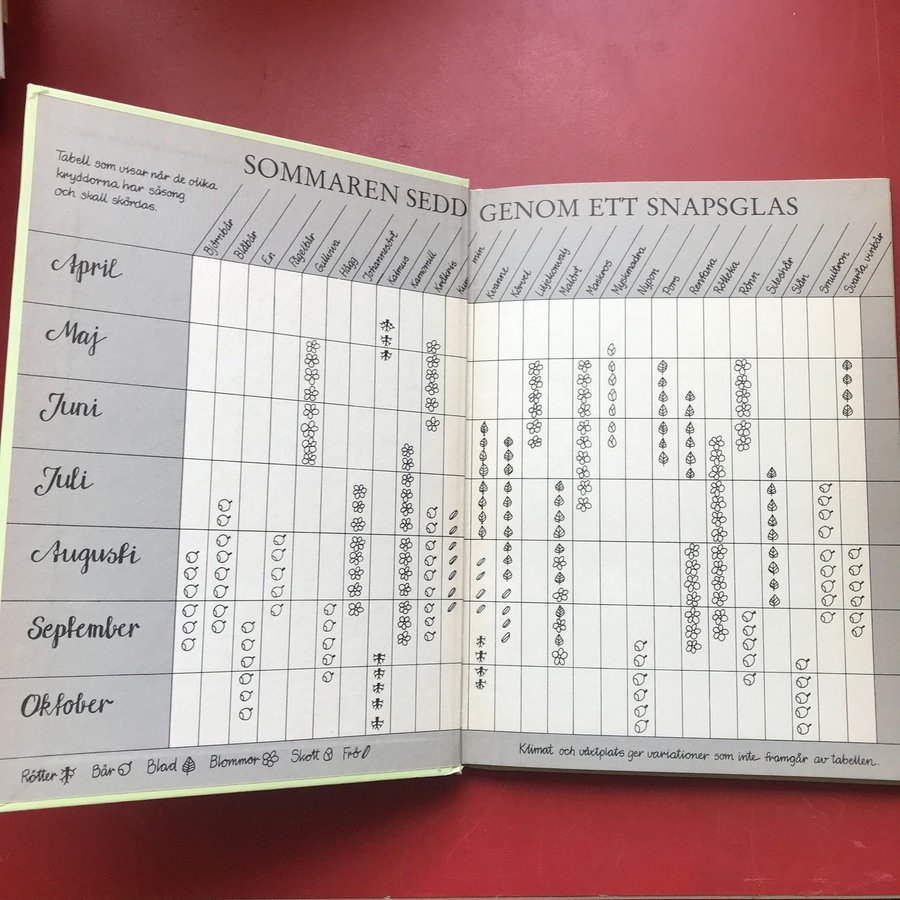 Tabell som visar när de olika
kryddorna har säsong
och skall skördas.
SOMMAREN SEDD GENOM ETT SNAPSGLAS
Björnbär
Blåbär
En
Fågelbär
Gullviva
Hägg
Johannesört
Kalmus
Kamomill
Krusbär
Kummin
Kvanne
Körvel
Liljekonvalj
Malört
Maskros
Myskmadra
Nypon
Pors
Renfana
Rölleka
Rönn
Slåtterblomma
Slån
Smultron
Svarta vinbär
April
Maj
Juni
Juli
Augusti
September
Oktober
Rötter
Bär
Blad
Blommor
Skott
Frö
Klimat och växtplats ger variationer som inte framgår av tabellen.